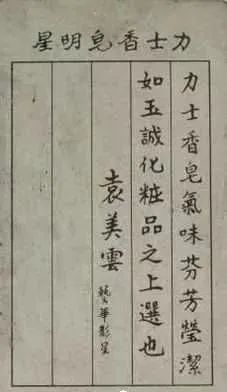 力士香皂明星
力士香皂氣味芬芳瑩潔
如玉誠化粧品之上選也
袁美雲 藝華影星